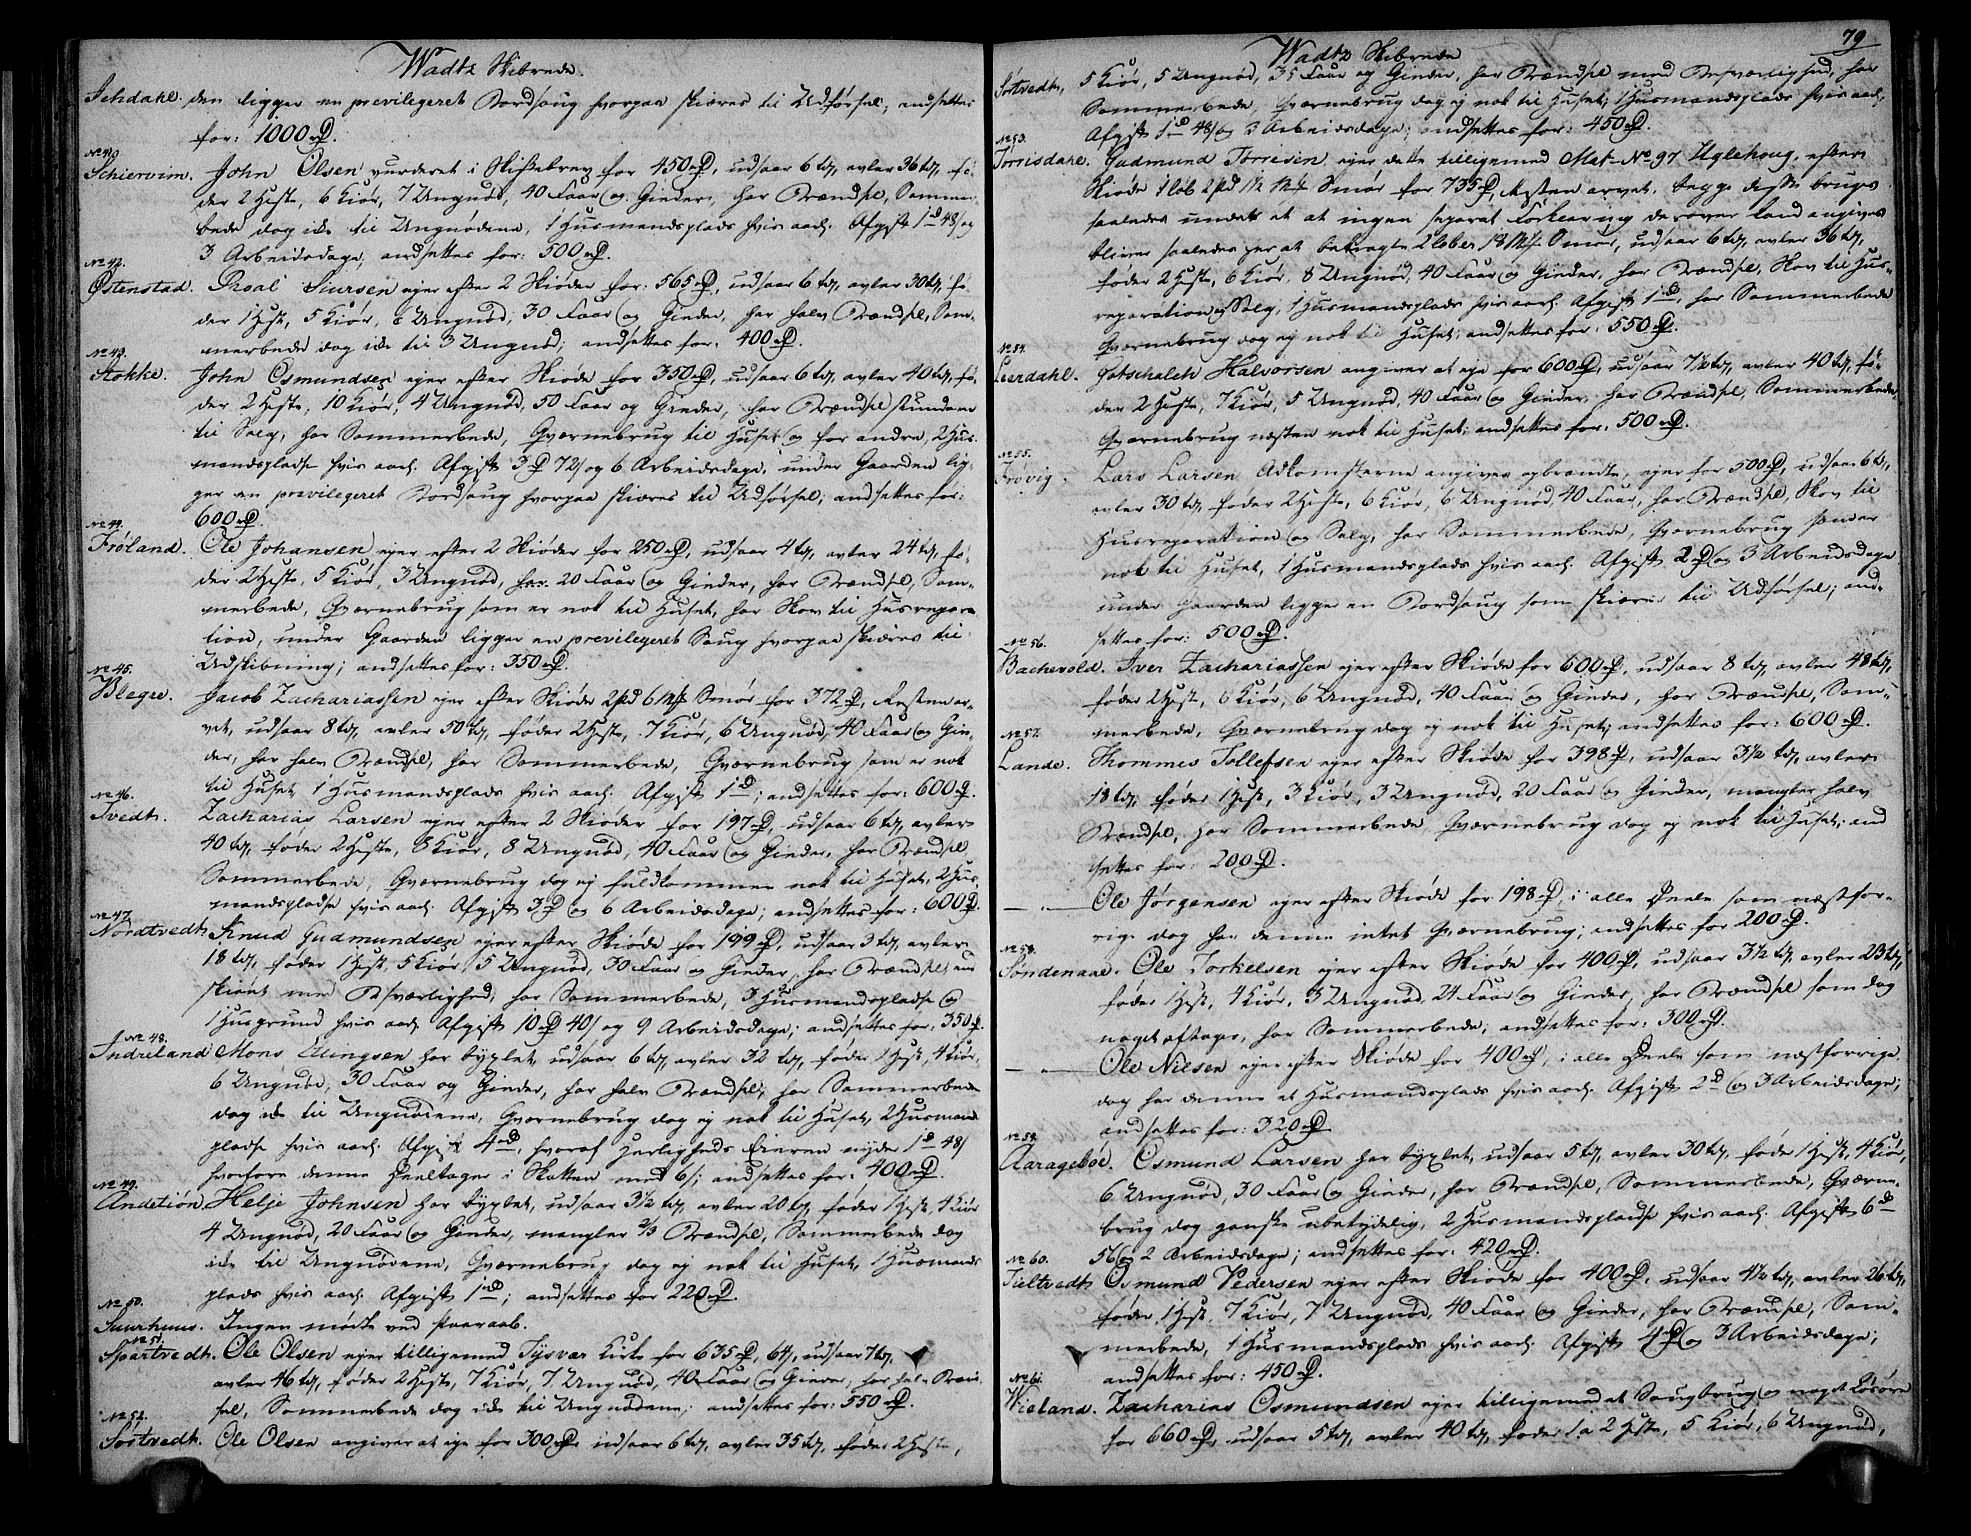 Wadtz Skibrede.
Schdahl. den ligger en previlegeret Bordsaug hvorpaa skiæres til Udførsel; ansettes
for: 1000 rD.
No 41.
Schiervim. John Olsen vurderet i Skiftebrev for 450 rD, udsaar 6 td, avler 36 td, fø-
der 2 Heste, 6 Kiør, 7 Ungnød, 40 Faar og Gieder, har Brændsel, Sommer-
bede dog ikke til Ungnødene, 1 Husmandsplads hvis aarl. Afgift 1 rd 48 s og
3 Arbeidsdage; ansettes for: 500 rD.
No 42.
Østenstad. Roal Siursen ejer efter 2 Skiøder for: 565 rD, udsaar 6 td, avler 30 td, fø-
der 1 Hest, 5 Kiør, 6 Ungnød, 30 Faar og Gieder, har halv Brændsel, Som-
merbede dog ikke til 3 Ungnød; ansettes for: 400 rD.
No 43.
Stokke. John Osmundsen ejer efter Skiøde for 350 rD, udsaar 6 td, avler 40 td, fø-
der 2 Heste, 10 Kiør, 4 Ungnød, 50 Faar og Gieder, har Brændsel stundom
til Salg, har Sommerbede, Qværnebrug til Huset og for andre, 2 Hus-
mandspladse hvis aarl. Afgift 3 rD 72 s og 6 Arbeidsdage, under Gaarden lig-
ger en previlegeret Bordsaug hvorpaa skiæres til Udførsel; ansettes for:
600 rD.
No 44.
Frøland. Ole Johansen ejer efter 2 Skiøder for 250 rD, udsaar 4 td, avler 24 td, fø-
der 2 Heste, 5 Kiør, 3 Ungnød, har 20 Faar og Gieder, har Brændsel, Som-
merbede, Qværnebrug som er nok til Huset, har Skov til Husrepara-
tion, under Gaarden ligger en previlegeret Saug hvorpaa skiæres til
Udskibning; ansettes for: 350 rD.
No 45.
Blegre. Jacob Zachariassen ejer efter Skiøde 2 pd 6 mk Smør for 372 rD, Resten ar-
vet, udsaar 8 td, avler 50 td, føder 2 Heste, 7 Kiør, 6 Ungnød, 40 Faar og Gie-
der, har halv Brændsel, har Sommerbede, Qværnebrug som er nok
til Huset, 1 Husmandsplads hvis aarl. Afgift 1 rD; ansettes for: 600 rD.
No 46.
Tvedt. Zacharias Larsen ejer efter 2 Skiøder for 197 rD, udsaar 6 td, avler
40 td, føder 2 Heste, 8 Kiør, 8 Ungnød, 40 Faar og Gieder, har Brændsel
Sommerbede, Qværnebrug dog ej fuldkommen nok til Huset, 2 Hus-
mandspladse hvis aarl. Afgift 3 rD og 6 Arbeidsdage; ansettes for: 600 rD.
No 47.
Nordtvedt. Knud Gudmundsen ejer efter Skiøde for 199 rD, udsaar 3 td, avler
18 td, føder 1 Hest, 5 Kiør, 5 Ungnød, 30 Faar og Gieder, har Brændsel en
skiønt med Besværlighed, har Sommerbede, 3 Husmandspladse og
1 Husgrund hvis aarl. Afgift 10 rD 40 s og 9 Arbeidsdage; ansettes for: 350 rD.
No 48.
Indreland Mons Elingsen har byxlet, udsaar 6 td, avler 32 td, føder 1 Hest, 4 Kiør,
6 Ungnød, 30 Faar og Gieder, har halv Brændsel, har Sommerbede
dog ikke til Ungnødene, Qværnebrug dog ej nok til Huset, 2 Husmands-
pladse hvis aarl. Afgift 4 rD, hvoraf Herligheds Eieren nyder 1 rD 48 s
hvorfore denne deeltager i Skatten med 6 s; ansettes for: 400 rD.
No 49.
Andetiøn Helje Johnsen har byxlet, udsaar 3½ td, avler 20 td, føder 1 Hest, 4 Kiør
4 Ungnød, 20 Faar og Gieder, mangler ⅔ Brændsel, Sommerbede dog
ikke til Ungnødene, Qværnebrug dog ej nok til Huset, 1 Husmands-
plads hvis aarl. Afgift 1 rD; ansettes for 220 rD.
No 50.
Suurhuus. Ingen mødte ved paaraab.
No 51.
Spartvedt. Ole Olsen ejer tilligemed Tysvær Kirke for 635 rD, 64 s, udsaar 7 td,
avler 46 td, føder 2 Heste, 7 Kiør, 7 Ungnød, 40 Faar og Gieder, har halv Brænd-
sel, Sommerbede dog ikke til Ungnødene; ansettes for: 550 rD.
No 52.
Sørtvedt. Ole Olsen angiver at eje for 300 rD, udsaar 6 td, avler 35 td, føder 2 Heste,
79
Wadtz Skibrede
Sørtvedt, 5 Kiør, 5 Ungnød, 35 Faar og Gieder, har Brændsel med Besværlighed, har
Sommerbede, Qværnebrug dog ej nok til Huset; 1 Husmandsplads hvis aarl.
Afgift 1 rD 48 s og 3 Arbeidsdage; ansettes for: 450 rD.
No 53.
Torrisdare. Gudmund Torrisen ejer dette tilligemed Mat. No 97 Uglehoug, efter
Skiøde 1 løb 2 pd 1½ mk Smør for 735 rD, Resten arvet, begge disse bruges
saaledes under et at ingen separat Forklaring derover kand angives
bliver saaledes her at betragte 2 løber 18 mk Smør, udsaar 6 td, avler 36 td,
føder 2 Heste, 6 Kiør, 8 Ungnød, 40 Faar og Gieder, har Brændsel, Skov til Hus-
reparation og Salg, 1 Husmandsplads hvis aarl. Afgift 1 rD, har Sommerbede
Qværnebrug dog ej nok til Huset; ansettes for: 550 rD.
No 54.
Leerdahl. Gotschalch Halvorsen angiver at eje for 600 rD, udsaar 7½ td, avler 40 td, fø-
der 2 Heste, 7 Kiør, 5 Ungnød, 40 Faar og Gieder, har Brændsel, Sommerbede,
Qværnebrug næsten nok til Huset; ansettes for: 500 rD.
No 55.
Frøvig. Lars Larsen Adkomsterne angives opbrændte, ejer for 500 rD, udsaar 6 td,
avler 30 td, føder 2 Heste, 6 Kiør, 6 Ungnød, 40 Faar, har Brændsel, Skov til
Husreparation og Salg, har Sommerbede, Qværnebrug
nok til Huset, 1 Husmandsplads hvis aarl. Afgift 2 rD og 3 Arbeidsdage
under Gaarden ligger en Bordsaug som skiærer til Udførsel; an-
settes for: 500 rD.
No 56.
Bachevold. Iver Zachariassen ejer efter Skiøde for 600 rD, udsaar 8 td, avler 48 td,
føder 2 Heste, 6 Kiør, 6 Ungnød, 40 Faar og Gieder, har Brændsel, Som-
merbede, Qværnebrug dog ej nok til Huset; ansettes for: 600 rD.
No 57.
Lande. Thommes Tollefsen ejer efter Skiøde for 398 rD, udsaar 3½ td, avler
18 td, føder 1 Hest, 3 Kiør, 3 Ungnød, 20 Faar og Gieder, mangler halv
Brændsel, har Sommerbede, Qværnebrug dog ej nok til Huset; an-
settes for: 200 rD.
— " — Ole Jørgensen ejer efter Skiøde for 198 rD, i alle Deele som næstfor-
rige dog har denne intet Qværnebrug; ansettes for 200 rD.
No 58.
Søndenaae. Ole Torkelsen ejer efter Skiøde for 400 rD, udsaar 3½ td, avler 23 td,
føder 1 Hest, 4 Kiør, 3 Ungnød, 24 Faar og Gieder, har Brændsel som dog
noget aftager, har Sommerbede; ansettes for: 300 rD.
— " — Ole Nilsen ejer efter Skiøde for 400 rD, i alle Deele som næstforrige
dog har denne et Husmandsplads hvis aarl. Afgift 2 rD og 3 Arbeidsdage;
ansettes for: 320 rD.
No 59.
Aarageböe. Osmund Larsen har byxlet, udsaar 5 td, avler 30 td, føder 1 Hest, 4 Kiør,
6 Ungnød, 30 Faar og Gieder, har Brændsel, Sommerbede, Qværne-
brug dog ganske ubetydelig, 2 Husmandspladse hvis aarl. Afgift 6 rD
56 s og 2 Arbeidsdage; ansettes for: 420 rD.
No 60.
Tieltvedt Osmund Pedersen ejer efter Skiøde for 400 rD, udsaar 4½ td, avler 26 td,
føder 1 Hest, 7 Kiør, 7 Ungnød, 40 Faar og Gieder, har Brændsel, Som-
merbede, 1 Husmandsplads hvis aarl. Afgift 4 rD og 3 Arbeidsdage;
ansettes for: 450 rD.
No 61.
Wieland. Zacharias Osmundsen ejer tilligemed et Saugbrug og noget Løsøre
for 660 rD, udsaar 5 td, avler 40 td, føder 2 Heste, 5 Kiør, 6 Ungnød,